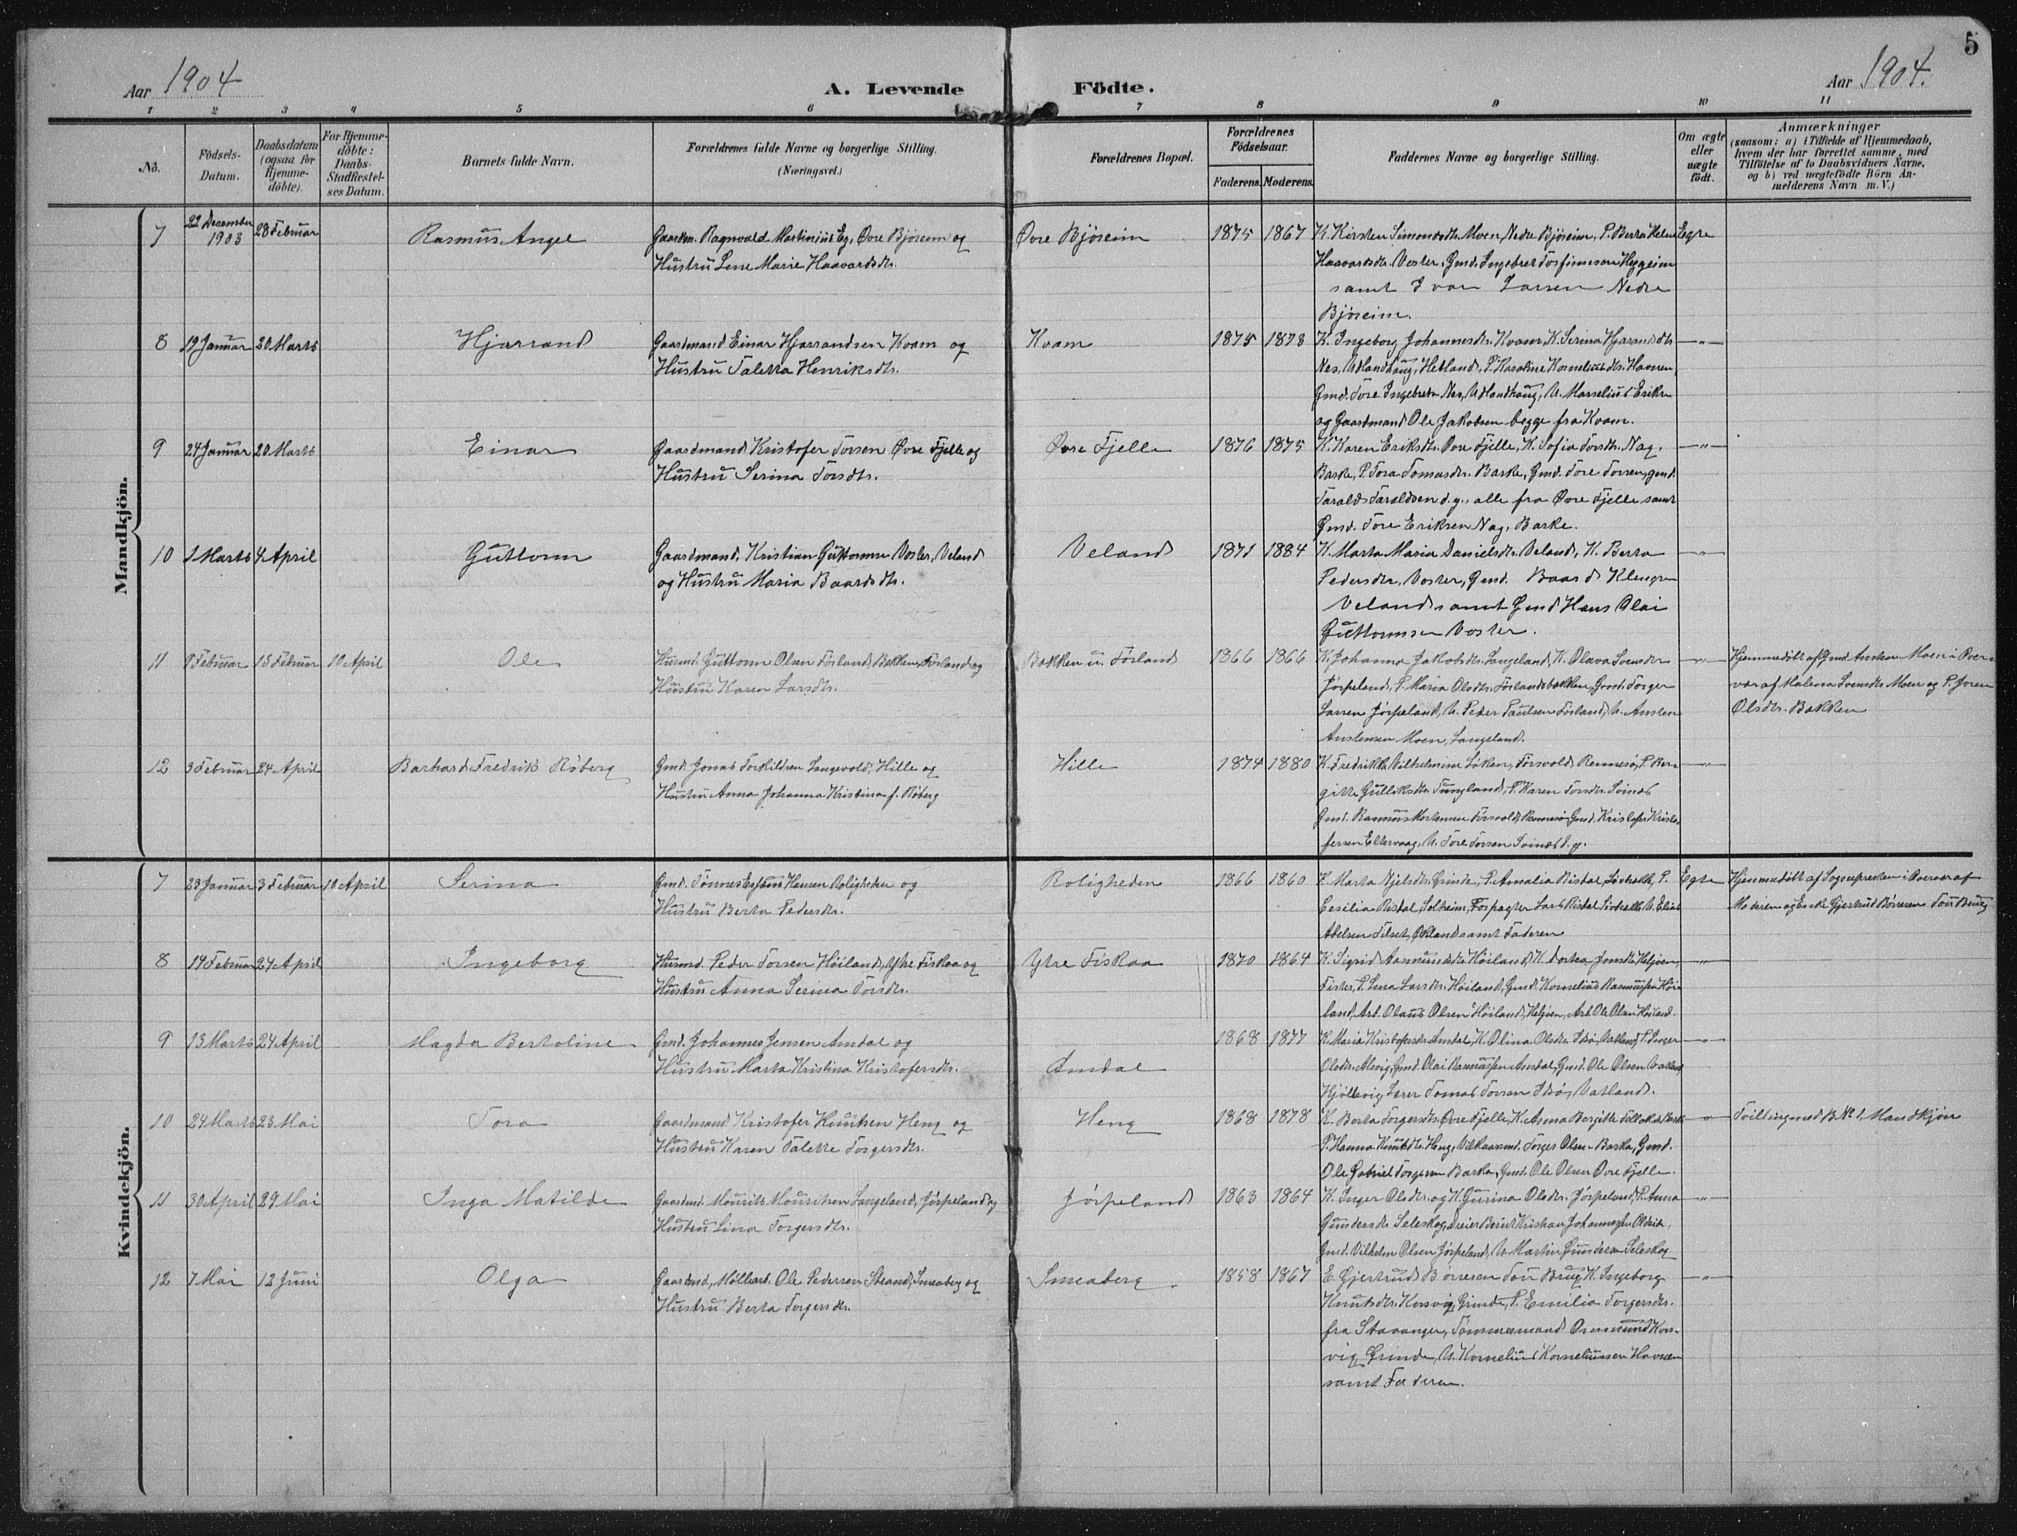 5
Aar 1904
A. Levende Födte.
Aar 1904.
1 2 3 4 5 6 7 8 9 10 11
No.
Födsels-
Datum.
Daabsdatum
(ogsaa for
Hjemme-
döbte).
For Hjemme-
döbte:
Daabs-
Stadfæstel-
ses Datum.
Barnets fulde Navn.
Forældrenes fulde Navne og borgerlige Stilling.
(Næringsvei.)
Forældrenes Bopæl.
Forældrenes
Födselsaar.
Faderens. Moderens.
Faddernes Navne og borgerlige Stilling.
Om ægte
eller
uægte
födt.
Anmærkninger
(saasom: a) i Tilfælde af Hjemmedaab,
hvem der har forrettet samme, med
Tilföielse af to Daabsvidners Navne,
og b) ved uægtefödte Börn An-
melderens Navn m. V.)
Mandkjön.
7 22 December 1903 28 Februar Rasmus Angel
Gaardm. Ragnvald Martinius Eg, Øvre Bjøreim og
Hustru Lene Marie Haavardsdtr.
Øvre Bjøreim 1875 1867
K. Kirsten Simonsdtr. Moen, Nedre Bjøreim, P. Berta Helene
Haavardsdtr. Voster, Gmd. Ingebret Torfinnsen Heggeim
samt Ivar Larsen Nedre
Bjøreim.
Egte
8 19 Januar 20 Marts Hjarrand
Gaardmand Einar Hjarrandsen Kvam og
Hustru Taletta Henriksdtr.
Kvam 1875 1878
K. Ingeborg Johannesdtr. Kvam, K. Serina Hjarandsdtr.
Nes, Adlandhaug, Hetland, P. Rasoline Korneliusdtr. Havnen,
Gmd. Tore Ingebretn Nes, Adlandhaug, U. Marselius Eriksen
og Gaardmand Ole Jakobsen begge fra Kvam.
— " —
9 24 Januar 20 Marts Einar
Gaardmand Kristofer Torsen Øvre Tjelle og
Hustru Serina Torsdtr.
Øvre Tjelle 1876 1875
K. Karen Eriksdtr. Øvre Tjelle, K. Sofia Torsdtr. Nag,
Barke, P. Tora Tomasdtr. Barke, Gmd. Tore Torsen, gmd.
Tarald Taraldsen d.y., alle fra Øvre Tjelle samt
Gmd. Tore Eriksen Nag, Barke.
— " —
10 1 Marts 4 April Guttorm
Gaardmand, Kristian Guttormsen Voster, Veland
og Hustru Maria Baardsdtr.
Veland 1871 1884
K. Marta Maria Danielsdtr. Veland, K. Berta
Pedersdtr. Voster, Gmd. Baard Klengsen
Veland samt Gmd Hans Olai
Guttormsen Voster.
— " —
11 9 Februar 13 Februar 10 April Ole
Husmd. Guttorm Olsen Førland, Bakken u. Førland og
Hustru Karen Larsdtr.
Bakken u. Førland 1866 1866
K. Johanna Jakobsdtr. Langeland, K. Olava Svensdtr
Jørpeland, P. Maria Olsdtr. Førlandsbakken, Gmd. Torger
Larsen Jørpeland, U. Peder Paulsen Førland, U. Austen
Austensen Moen, Langeland.
— " —
Hjemmedøbt af Gmd. Austen Moen i Over-
vær af Malena Svensdtr. Moen og P. Joren
Olsdtr. Bakken
12 3 Februar 24 April Barhard Fredrik Røberg
Gmd. Jonas Torkildsen Langevold, Hille og
Hustru Anna Johanna Kristina f. Røberg
Hille 1874 1880
K. Fredrikke Vilhelmine Løken, Førsvold Rennesø, P. Ber-
gitte Gulleiksdtr. Tungland, P. Karen Torsdtr. Soines
Gmd. Rasmus Mortensen Førsvold, Rennesø, Gmd. Kristofer Kristo-
fersen Eltervaag, U. Tore Torsen Soines d.y.
— " —
Kvindekjön.
7 23 Januar 3 Februar 10 April Serina
Gmd. Tønnes Espens Hansen Roligheden og
Hustru Berta Pedersdtr.
Roligheden 1866 1860
P. Marta Njelsdtr. Grinde, P. Amalia Risdal, P.
Cesilia Risdal Solheim, Forpagter Lars Risdal, U. Elias
Abelsen samt Faderen
Egte
Hjemmedøbt af Sognepresten i Overvær af
Moderen og Enke Gjertrud Børresen Tou Brug
8 14 Februar 24 April Ingeborg
Husmd. Peder Torsen Høiland, Ytre Fiskaa og
Hustru Anna Serina Torsdtr.
Ytre Fiskaa 1870 1864
K. Sigrid Aasmundsdtr. Høiland, K. Dortea Jonsdtr. Heljeen,
Fister, P. Lena Larsdtr. Høiland, Gmd. Kornelius Rasmussen Høi-
land, Arb. Olaus Olsen Høiland, Heljeen, Arb. Ole Olsen Høiland.
— " —
9 13 Marts 24 April Magda Bertoline
Gmd. Johannes Jensen Amdal og
Hustru Marta Kristina Kristofersdtr.
Amdal 1868 1877
K. Maria Kristofersdtr. Amdal, K. Olina Olsdtr. P. Inger
Olsdtr. Alsvig, Gmd. Olai Rasmussen Amdal, Gmd. Ole Olsen
Lærer Tomas Torsen Vatland.
— " —
10 24 Marts 23 Mai Tora
Gaardmand Kristofer Knutsen Heng og
Hustru Karen Talette Torgersdtr.
Heng 1868 1878
K. Berta Torgersdtr. Øvre Tjelle, K. Anna Bergitte Barke
P. Hanna Knutsdtr. Heng, Torger Olsen Barka, Gmd.
Ole Gabriel Torgersen Barka, Gmd. Ole Olsen Øvre Tjelle.
— " —
Tvilling med B. No 1. Mandkjøn
11 30 April 29 Mai Inga Matilde
Gaardmd. Mourits Mouritsen Langeland, Jørpeland og
Hustru Lina Torgersdtr.
Jørpeland 1863 1864
K. Inger Olsdtr. og K. Gurina Olsdtr. Jørpeland, P. Anna
Gundersdtr. Seleskog, Kristian Johannesen
Gmd. Vilhelm Olsen Jørpeland, U. Martin Gundersen Seleskog
— " —
12 7 Mai 12 Juni Olga
Gaardmd, Møllearb. Ole Pedersen Strand, Smeaberg og
Hustru Berta Torgersdtr.
Smeaberg 1858 1867
E. Gjertrud Børresen Tou Brug, K. Ingeborg
Knutsdtr. Korsvig, Grinde, P. Emilie Torgersdtr.
fra Stavanger, Tømmermand Osmund Kors-
vig Grinde, U. Kornelius Korneliussen Havnen
samt Faderen.
— " —